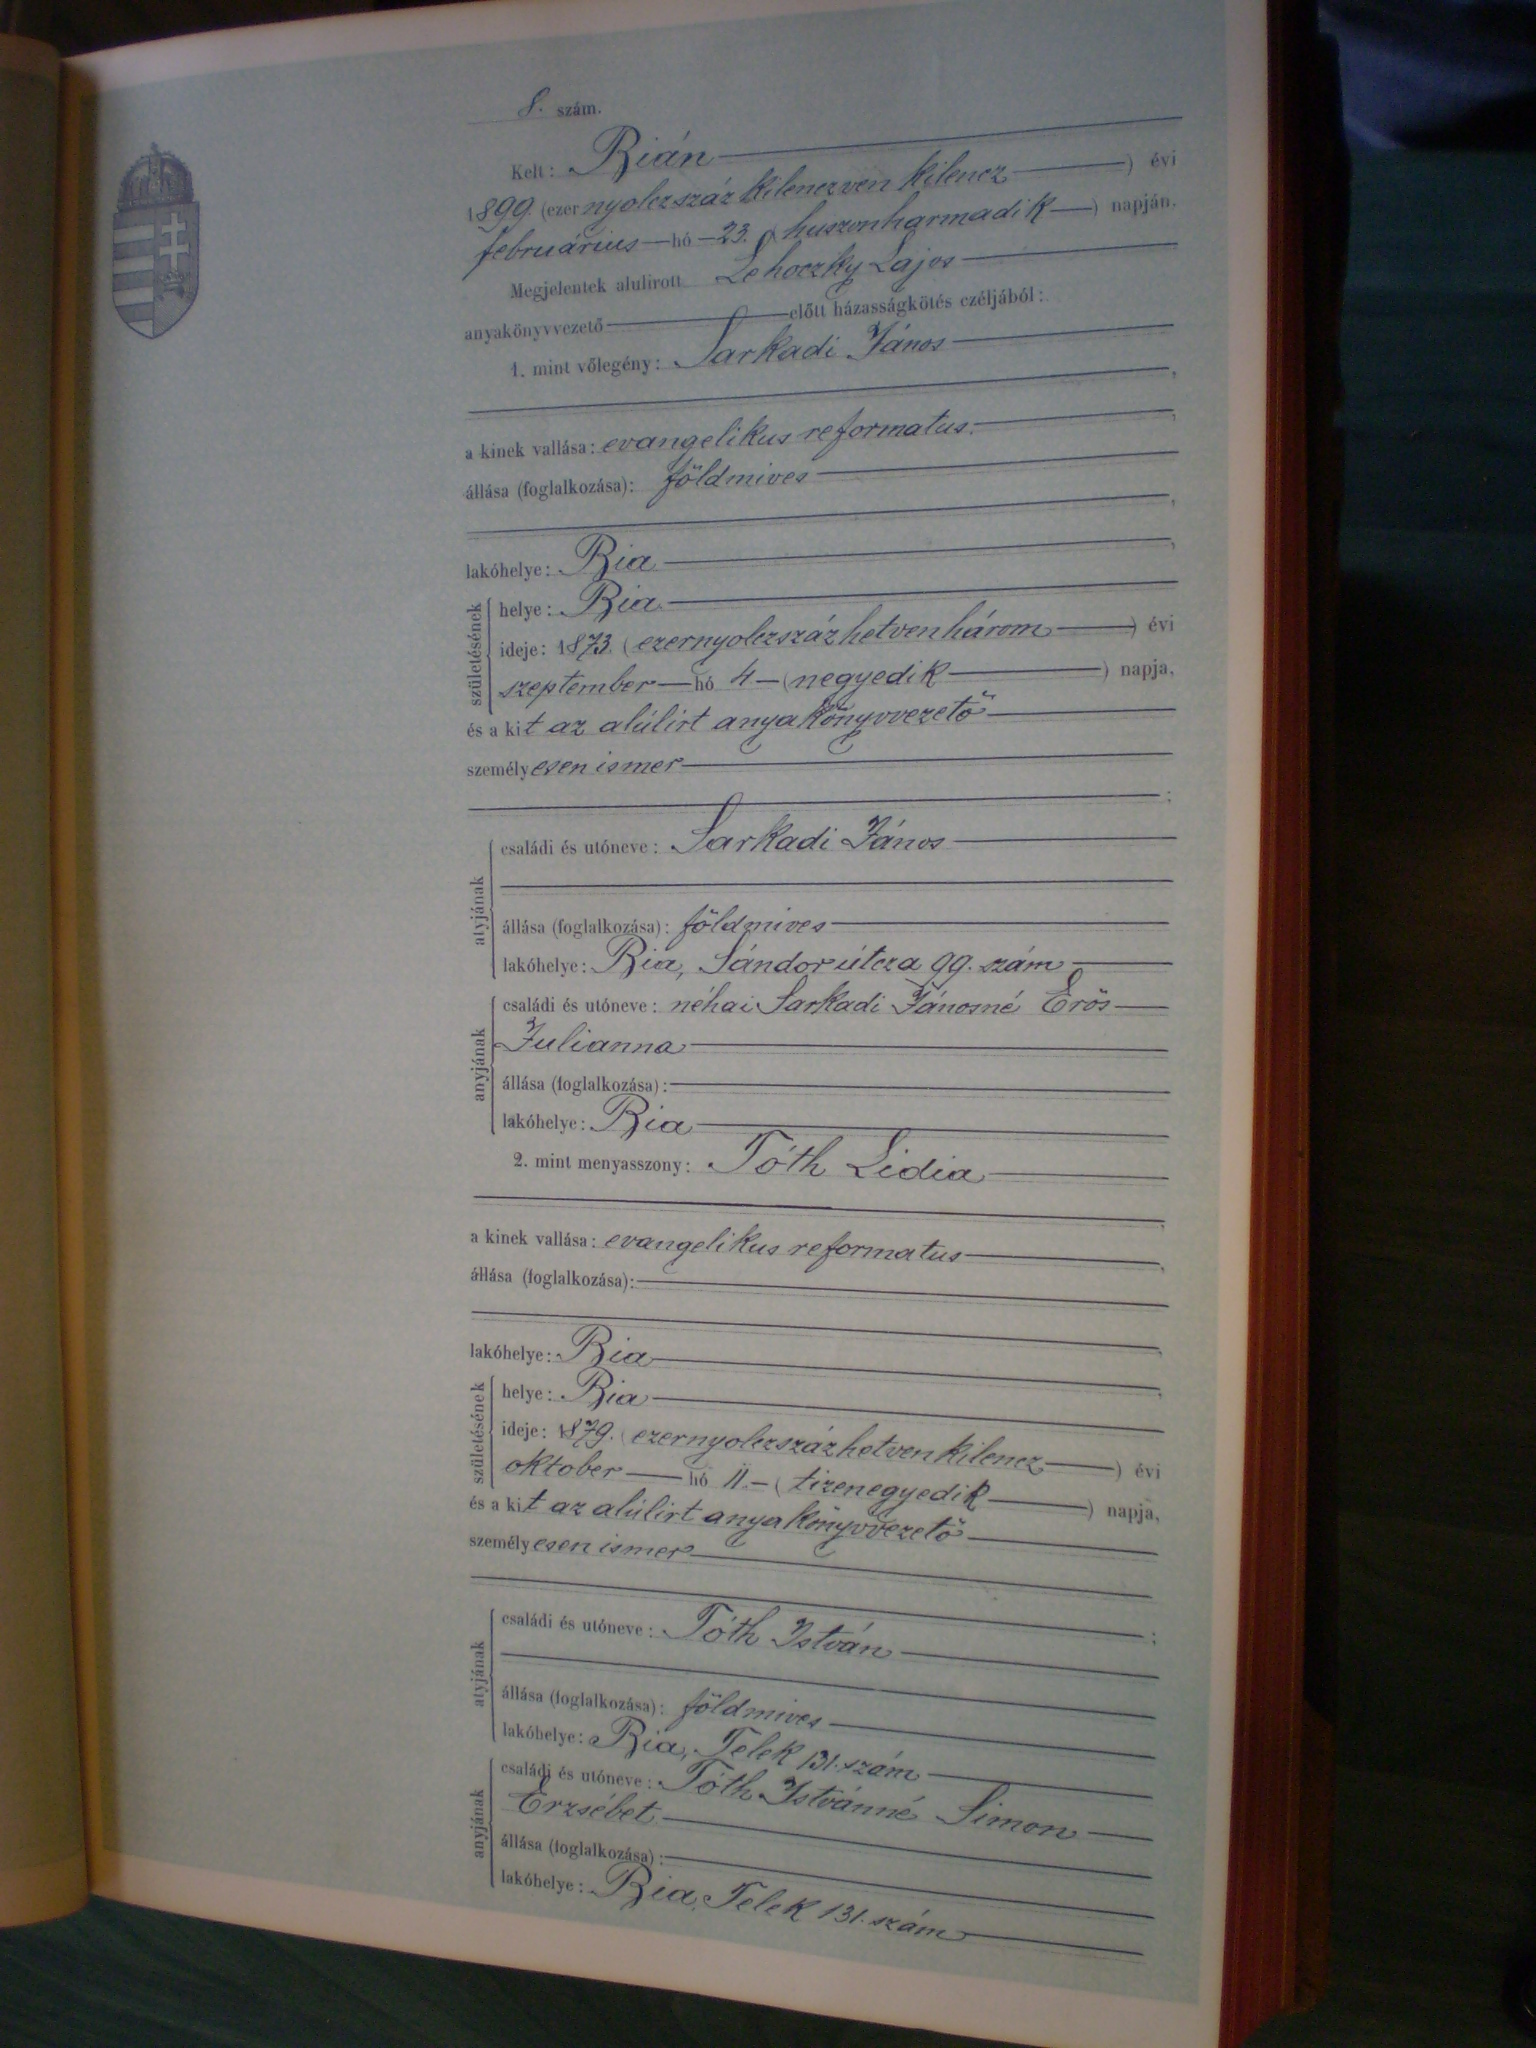 8. szám.
Kelt: Bián
1899. (ezernyolczszáz kilenczven kilencz) évi
februárius hó 23. (huszonharmadik) napján.
Megjelentek alulirott Lehoczky Lajos
anyakönyvvezető előtt házasságkötés czéljából:
1. mint vőlegény: Sarkadi János
a kinek vallása: evangelikus reformatus.
állása (foglalkozása): földmives
lakóhelye: Bia
születésének
helye: Bia
ideje: 1873. (ezernyolczszáz hetvenhárom) évi
szeptember hó 4 (negyedik) napja,
és a kit az alúlirt anyakönyvvezető
személyesen ismer
atyjának
családi és utóneve: Sarkadi János
állása (foglalkozása): földmives
lakóhelye: Bia, Sándor útcza 99. szám
anyjának
családi és utóneve: néhai Sarkadi Jánosné Erős
Julianna
állása (foglalkozása):
lakóhelye: Bia
2. mint menyasszony: Tóth Lidia
a kinek vallása: evangelikus reformatus
állása (foglalkozása):
lakóhelye: Bia
születésének
helye: Bia
ideje: 1879. (ezernyolczszáz hetvenkilencz) évi
oktober hó 11. (tizenegyedik) napja,
és a kit az alúlirt anyakönyvvezető
személyesen ismer
atyjának
családi és utóneve: Tóth István
állása (foglalkozása): földmives
lakóhelye: Bia, Telek 131. szám
anyjának
családi és utóneve: Tóth Istvánné Simon
Erzsébet
állása (foglalkozása):
lakóhelye: Bia, Telek 131. szám